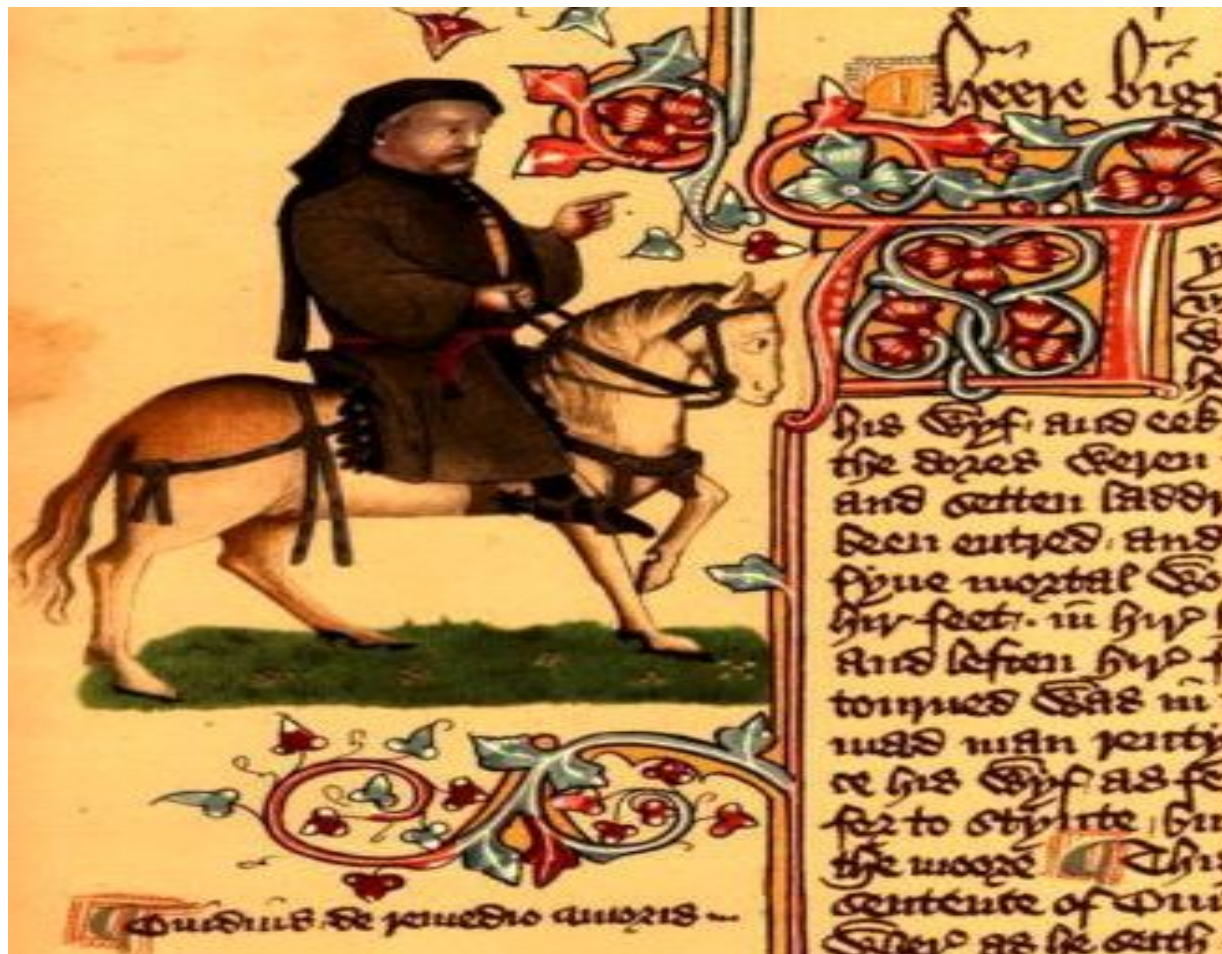 Heere bigi
his wyf and eek
the dores weren
and setten laddr
been entred and
fyue mortal wo
hir feet in hir
and leften hir f
tourned was in
mad man rentyn
ce his wyf as fe
fer to stynte
the moore Thi
sentence of Oui
wher as he seith
Ouidius de remedio amoris